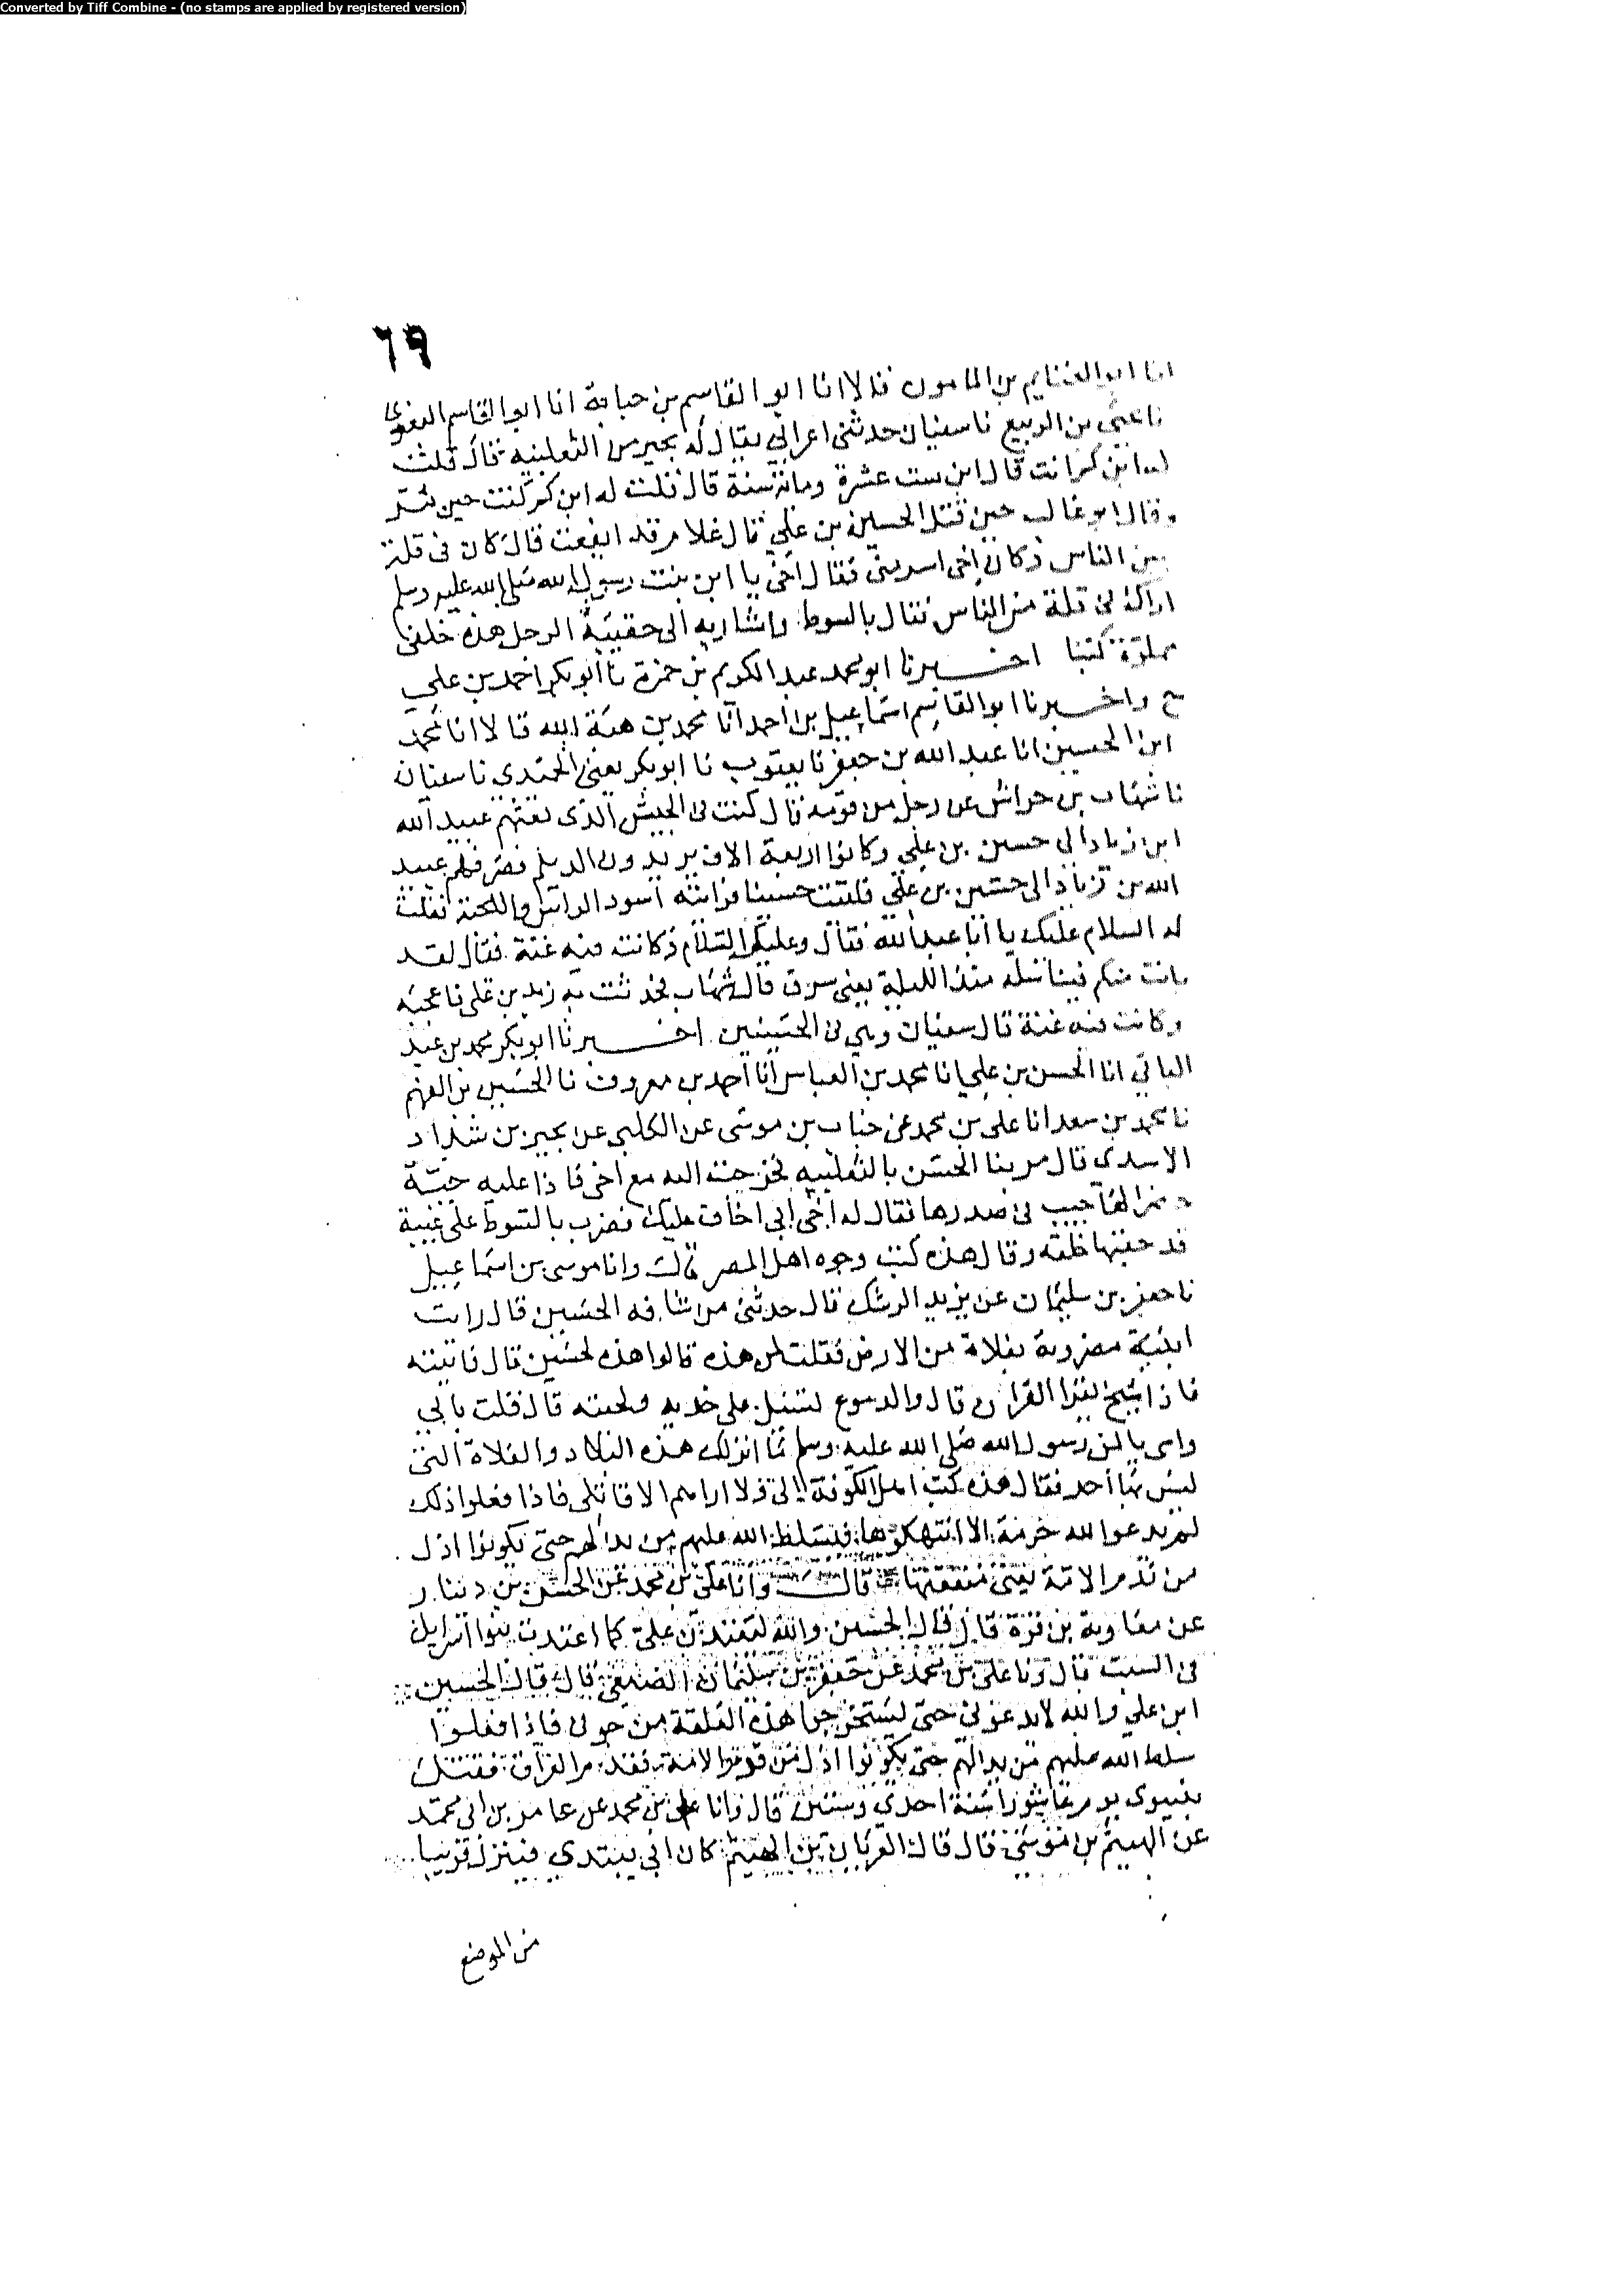 Converted by Tiff Combine - (no stamps are applied by registered version)
٦٩
انا ابو الغنايم بن المامون قالا انا ابو القاسم بن حبابة انا ابو القاسم البغوى
نا يحيى بن الربيع نا سفيان حدثنى اعرابي يقال له بحير من الثعلبيه قال قلت
له ابن كم انت قال ابن ست عشرة ومائة سنة قال قلت له ابن كم كنت حين
وقال ابو غالب حين قتل الحسين بن علي قال غلام قد ايفعت قال كان فى قلة
من الناس وكان اخى اسن منى فقال اخى يا ابن بنت رسول الله صلى الله عليه وسلم
اراك فى قلة من الناس فقال بالسوط واشار به الى حقيبة الرحل هذه خلفى
مملوة كتبا اخبرنا ابو محمد عبد الكريم بن حمزة نا ابو بكر احمد بن علي
ح واخبرنا ابو القاسم اسماعيل بن احمد انا محمد بن هبة الله قالا انا محمد
ابن الحسين انا عبد الله بن جعفر نا يعقوب نا ابو بكر يعنى الحميدي نا سفيان
نا شهاب بن حراش عن رجل من قومه قال كنت فى الجيش الذى بعثهم عبيد الله
ابن زياد الى حسين بن علي وكانوا اربعة الاف يريدون الديلم فصرفهم عبيد
الله بن زياد الى حسين بن علي فلقيت حسينا فرايته اسود الراس واللحية فقلت
له السلام عليك يا ابا عبد الله فقال وعليكم السلام وكانت فيه غنة فقال لقد
باتت منكم فينا سلة منذ الليلة يعنى سرق قال شهاب فحدثت به زيد بن على فاعجبه
وكانت فيه غنة قال سفيان وهي فى الحسينيين اخبرنا ابو بكر محمد بن عبد
الباقي انا الحسن بن علي انا محمد بن العباس انا احمد بن معروف نا الحسين بن الفهم
نا محمد بن سعد انا على بن محمد عن جناب بن موسى عن الكلبى عن بحير بن شداد
الاسدى قال مر بنا الحسين بالثعلبيه فخرجت اليه مع اخى فاذا عليه جبة
لها جيب فى صدرها فقال له اخى انى اخاف عليك فضرب بالسوط على عيبة
قد حقبها خلفه وقال هذه كتب وجوه اهل المصر قال وانا موسى بن اسماعيل
نا جعفر بن سليمان عن يزيد الرشك قال حدثنى من شافه الحسين قال رايت
ابنية مضروبة بفلاة من الارض فقلت لمن هذه قالوا هذه لحسين قال فاتيته
فاذا شيخ يقرا القران قال والدموع تسيل على خديه ولحيته قال قلت بابي
وامى يا ابن رسول الله صلى الله عليه وسلم ما انزلك هذه البلاد والفلاة التى
ليس بها احد فقال هذه كتب اهل الكوفة الى ولا اراهم الا قاتلى فاذا فعلوا ذلك
لم يدعوا لله حرمة الا انتهكوها فيسلط الله عليهم من يذلهم حتى يكونوا اذل
من فرم الامة يعنى مقنعتها قال وانا على بن محمد عن الحسن بن دينار
عن معاوية بن قرة قال قال الحسين والله ليعتدن علي كما اعتدت بنوا اسرايل
فى السبت قال ونا على بن محمد عن جعفر بن سليمان الضبعى قال قال الحسين
ابن علي والله لا يدعونى حتى يستخرجوا هذه العلقة من جوفى فاذا فعلوا
سلط الله عليهم من يذلهم حتى يكونوا اذل من فرم الامة فقدم العراق فقتل
بنينوى يوم عاشورا سنة احدى وستين قال وانا على بن محمد عن عامر بن ابى محمد
عن الهيثم بن موسى قال قال العريان بن الهيثم كان ابى يبتدي فينزل قريبا
من الموضع